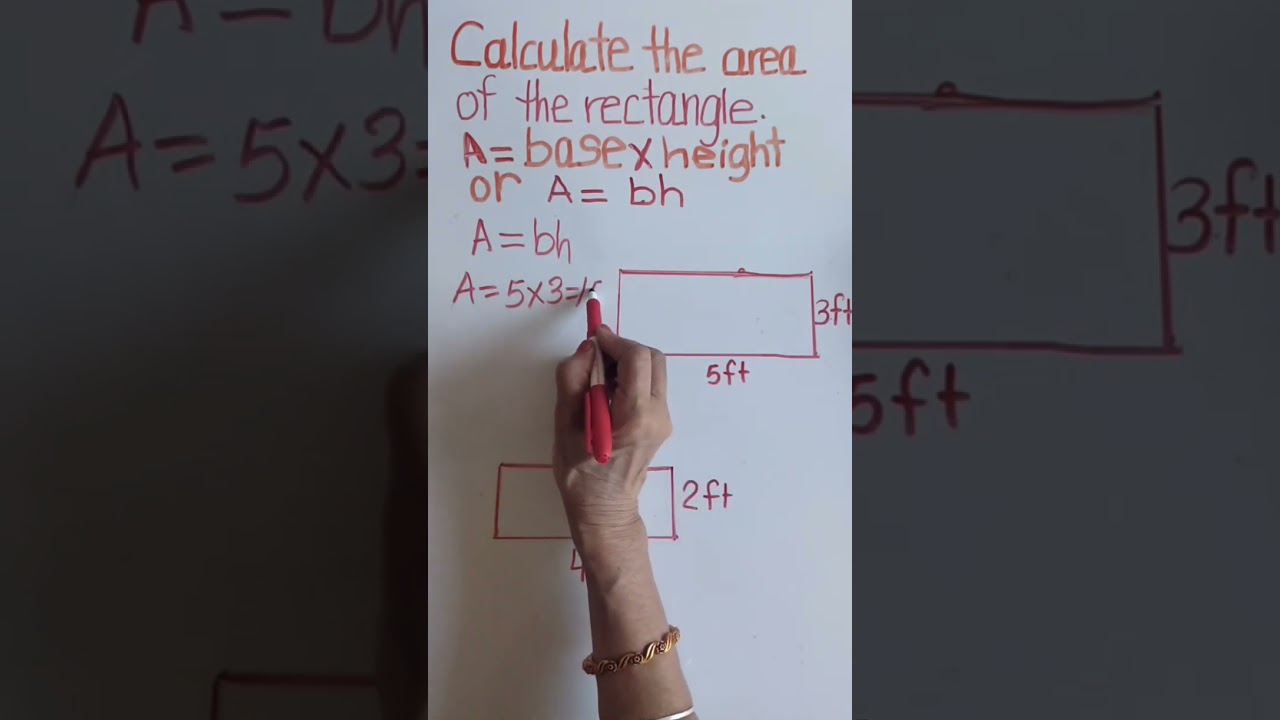 Calculate the area
of the rectangle.
A = base x height
or A = bh
A = bh
A = 5 x 3 =
3ft
5ft
2ft
4
A = bh
A = 5 x 3 =
3ft
5ft